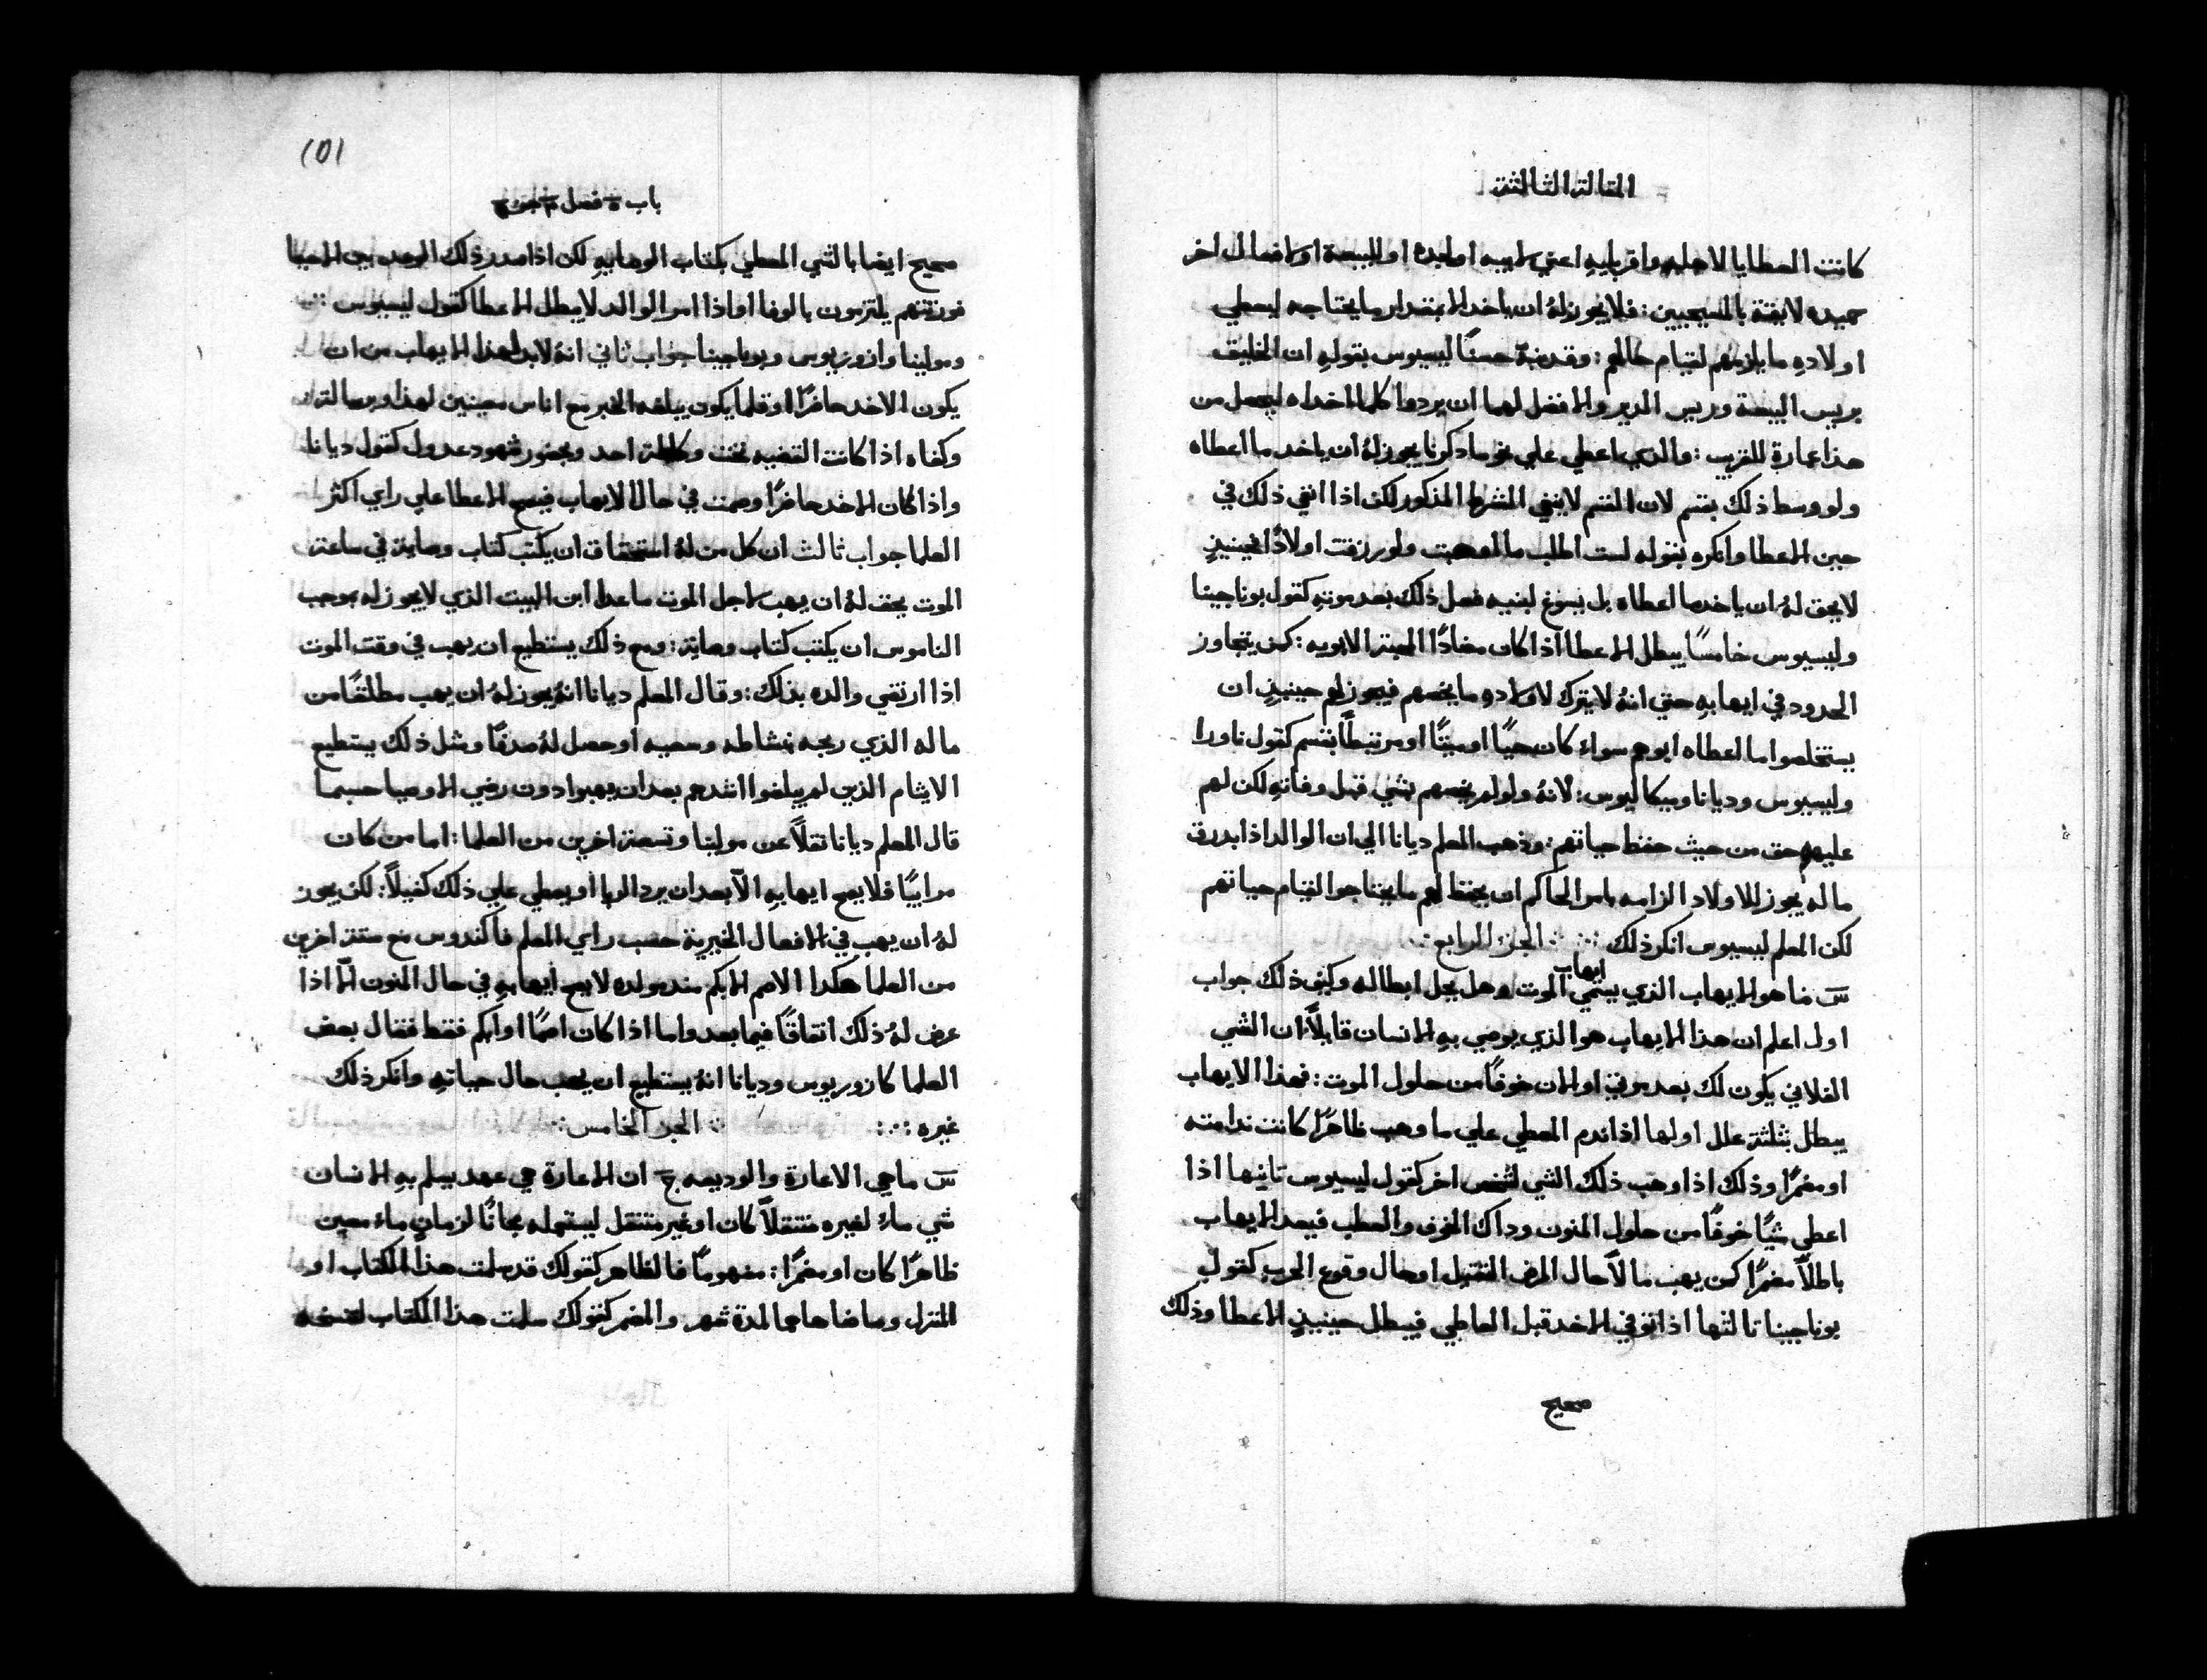 المقالة الثالثة
كانت العطايا لاهليه واقربايه اعني لابيه او لبنيه او للبيعة او لافعال اخر
حميده لايقة بالمسيحيين: فلا يجوز له ان ياخد الا بمقدار ما يحتاجه ليعطي
اولاده ما يلزمهم لقيام حالهم: وقد نبه حسنًا ليسيوس بقوله ان الخليق
بريس البيعة وريس الدير والافضل لهما ان يردوا كلما اخداه ليحصل من
هذا عبارة للقريب: والذي اعطي علي نحو ما دكرنا يجوز لهُ ان ياخد ما اعطاه
ولو وسط ذلك بقسم لان القسم لا ينفي الشرط المذكور لكن اذا انفي ذلك في
حين الاعطا وانكره بقوله لست اطلب ما اوهبت ولو رزقت اولادًا فحينيذٍ
لا يحق لهُ ان ياخد ما اعطاه بل يسوغ لبنيه فعل ذلك بعد موته كقول بوناجينا
وليسيوس خامسًا يبطل الاعطا اذا كان مضادًا المحبة الابويه: كمن يتجاوز
الحدود في ايهابهِ حتي انهُ لا يترك لاولادهِ ما يخصهم فيجوز لهم حينيذٍ ان
يستخلصوا ما اعطاه ابوهم سواء كان حيًا او ميتًا او مرتبطًا بقسم كقول ناورا
وليسيوس وديانا وبيكاليوس: لانهُ ولو لم يخصهم شي قبل وفاتهِ لكن لهم
عليهم حق من حيث حفظ حياتهم: وذهب المعلم ديانا الي ان الوالد اذا بدرق
ماله يجوز للاولاد الزامه بامر الحاكم ان يحفظ لهم ما يحتاجوا لقيام حياتهم
لكن المعلم ليسيوس انكر ذلك ⁘ الجز الرابع
سَ ما هو الايهاب الذي يسمي ايهاب الموت وهل يحل ابطاله وكيف ذلك جواب
اول اعلم ان هذا الايهاب هو الذي يوصي بهِ الانسان قايلاً ان الشي
الفلاني يكون لك بعد موتي او الان خوفًا من حلول الموت: فهذا الايهاب
يبطل بثلثة علل اولها اذا ندم المعطي علي ما وهب ظاهرًا كانت ندامته
او مضمرًا وذلك اذا وهب ذلك الشي لشخص اخر كقول ليسيوس تانيها اذا
اعطي شيًا خوفًا من حلول المنون وداك الخوف والعطب فيعد الايهاب
باطلاً مضمرًا كمن يهب مالاً حال المرض الثقيل او حال وقوع الحرب كقول
بوناجينا تالتها اذا توفي الاخد قبل العاطي فيبطل حينيذٍ الاعطا وذلك
صحيح
101
باب ٥ فصل ٢ جز
صحيح ايضا بالشي المعطي بكتاب الوهابيه لكن اذا صدر ذلك الوعد بين الاحيا
فورثتهم يلتزمون بالوفا او اذا امر الوالد لا يبطل الاعطا كقول ليسيوس ⁘
ومولينا وازوريوس وبوناجينا جواب ثاني انهُ لابد لهذا الايهاب من ان
يكون الاخد حاضرًا او قلما يكون يبلغه الخبر مع اناس معينين لهذا وبرسالة
وكفاه اذا كانت القضيه تحت وكالة احد وبحضور شهود عدول كقول ديانا
واذا كان الاخد حاضرًا وصمت في حال الايهاب فيصح الاعطا علي راي اكثر
العلما جواب ثالث ان كل من لهُ استحقاق ان يكتب كتاب وصاية في ساعة
الموت يحق لهُ ان يهب لاجل الموت ماعدا ابن البيت الذي لا يجوز له بموجب
الناموس ان يكتب كتاب وصاية: ومع ذلك يستطيع ان يهب في وقت الموت
اذا ارتضي والده بذلك: وقال المعلم ديانا انهُ يجوز لهُ ان يهب مطلقًا من
ماله الذي ربحه بنشاطه وسعيه او حصل لهُ صدقًا ومثل ذلك يستطيع
الايتام الذين لم يبلغوا اشدهم بعد ان يهبوا دون رضي الاوصيا حسبما
قال المعلم ديانا نقلاً عن مولينا وتسعة اخرين من العلما: اما من كان
مرابيًا فلا يصح ايهابهِ الاّ بعد ان يرد الربا او يعطي علي ذلك كفيلاً: لكن يجوز
لهُ ان يهب في الافعال الخيرية حسب راي المعلم فاكندوس مع ستة اخرين
من العلما هكدا الاصم الابكم مند مولده لا يصح ايهابهِ في حال المنون الاّ اذا
عرض لهُ ذلك اتفاقًا فيما بعد واما اذا كان اصمًا او ابكم فقط فقال بعض
العلما كازوريوس وديانا انهُ يستطيع ان يهب حال حياتهِ وانكر ذلك
غيره ⁘ الجز الخامس ⁘
سَ ما هي الاعارة والوديعه جَ ان الاعارة هي عهد يسلم بهِ الانسان
شي ماء لغيره منتقلاً كان او غير منتقل ليستعمله مجانًا لزمانٍ ماء معين
ظاهرًا كان او مضمرًا: مفهومًا فالظاهر كقولك قد سلمت هذا الكتاب او
المنزل وما ضاهاهما لمدة شهر والمضمر كقولك سلمت هذا الكتاب لتنسخه